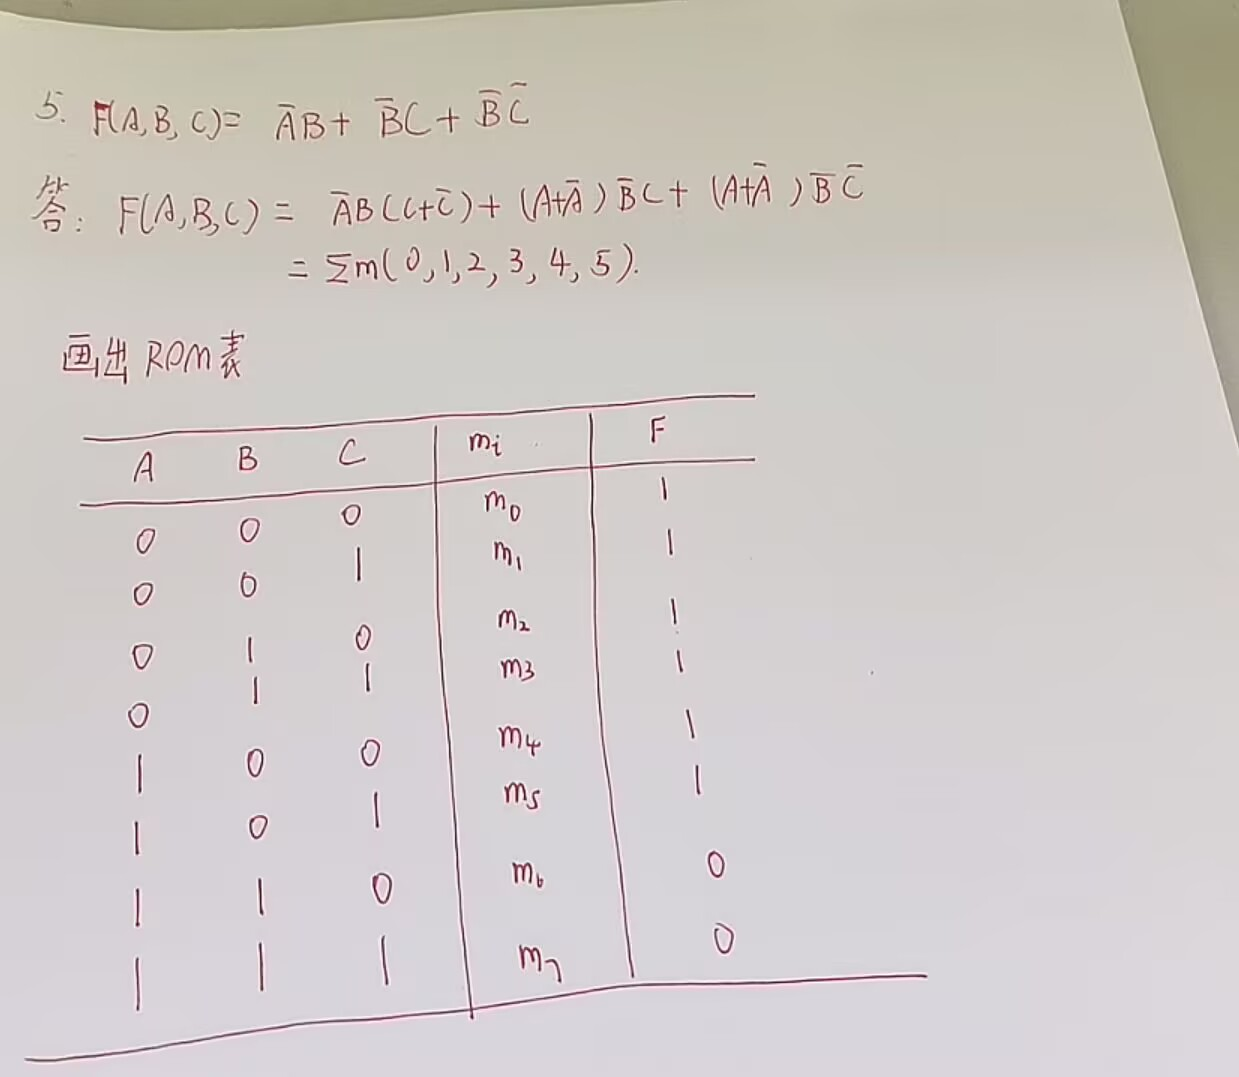 5. F(A,B,C)= A̅B+ B̅C+ B̅C̅
答: F(A,B,C) = A̅B(C+C̅)+ (A+A̅)B̅C+ (A+A̅)B̅C̅
= Σm(0,1,2,3,4,5).
画出ROM表
A B C mi F
0 0 0 m0 1
0 0 1 m1 1
0 1 0 m2 1
0 1 1 m3 1
1 0 0 m4 1
1 0 1 m5 1
1 1 0 m6 0
1 1 1 m7 0